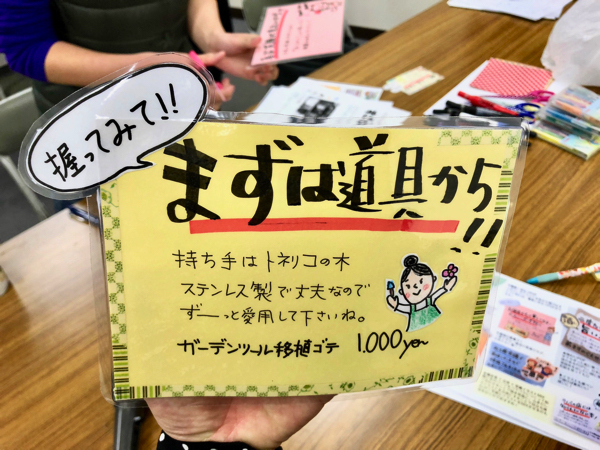 握ってみて!!
まずは道具から!!
持ち手はトネリコの木
ステンレス製で丈夫なので
ずーっと愛用して下さいね。
ガーデンツール移植ゴテ 1.000yen